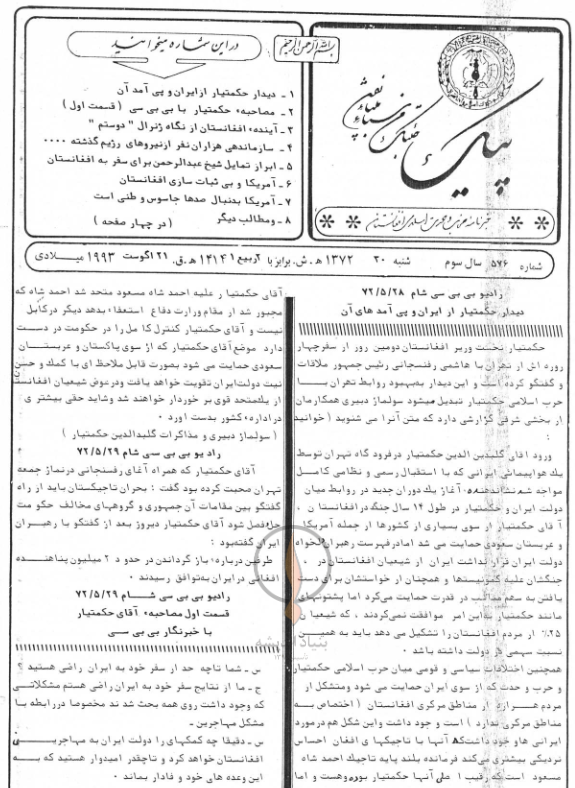 در این شماره میخوانید
بسم الله الرحمن الرحیم
۱ - دیدار حکمتیار از ایران و پی آمد آن
۲ - مصاحبه حکمتیار با بی بی سی ( قسمت اول )
۳ - آینده افغانستان از نگاه ژنرال " دوستم "
۴ - سازماندهی هزاران نفر از نیروهای رژیم گذشته ۰۰۰۰
۵ - ابراز تمایل شیخ عبدالرحمن برای سفر به افغانستان
۶ - آمریکا و بی ثبات سازی افغانستان
۷ - آمریکا بدنبال صدها جاسوس وطنی است
۸ - ومطالب دیگر ( در چهار صفحه )
پیک
خبرنامه
شماره ۵۷۶ سال سوم شنبه ۳۰ ۱۳۷۲ ه.ش. برابر با ۲ ربیع ۱ ۱۴۱۴ ه.ق. ۲۱ اگوست ۱۹۹۳ میلادی
رادیو بی بی سی شام ۷۲/۵/۲۸
دیدار حکمتیار از ایران و پی آمد های آن
حکمتیار نخست وزیر افغانستان دومین روز از سفر چهار
روزه اش از تهران با هاشمی رفسنجانی رئیس جمهور ملاقات
و گفتگو کرده است و این دیدار به بهبود روابط تهران با
حزب اسلامی حکمتیار تبدیل میشود سولماز دبیری همکارمان
از بخش شرقی گزارشی دارد که متن آنرا می شنوید ( خوانید
:
ورود آقای گلبدین الدین حکمتیار در فرود گاه تهران توسط
یك هواپیمای ایرانی که با استقبال رسمی و نظامی کامل
مواجه شد نشاندهنده آغاز یك دوران جدید در روابط میان
دولت ایران و حکمتیار در طول ۱۴ سال جنگ در افغانستان .
آقای حکمتیار از سوی بسیاری از کشورها از جمله آمریکا
و عربستان سعودی حمایت می شد اما در فهرست رهبران دلخواه
دولت ایران قرار نداشت ایران از شیعیان افغانستان در
جنگشان علیه کمونیستها و همچنان از خواستشان برای دست
یافتن به سهم مناسب در قدرت حمایت می‌کرد اما پشتونهای
مانند حکمتیار به این امر موافقت نمی‌کردند ، که شیعیان
۲۵٪ از مردم افغانستان را تشکیل می دهد باید به همین
نسبت سهمی در دولت داشته باشد ۰
همچنین اختلافات سیاسی و قومی میان حزب اسلامی حکمتیار
و حزب وحدت که از سوی ایران حمایت می شود و متشکل از
مردم هزاره از مناطق مرکزی افغانستان ( اختصاص به
مناطق مرکزی ندارد ) است وجود داشت و این شکل هم در مورد
ایرانی ها وجود داشت که آنها با تاجیکهای افغان احساس
نزدیکی بیشتری می‌کند فرمانده بلند پایه تاجیك احمد شاه
مسعود است که رقیب اصلی آنها حکمتیار بوده و هست و اما
آقای حکمتیار علیه احمد شاه مسعود متحد شد احمد شاه که
مجبور شد از مقام وزارت دفاع استعفاء بدهد دیگر در کابل
نیست و آقای حکمتیار کنترل کامل را در حکومت در دست
دارد موضع آقای حکمتیار که از سوی پاکستان و عربستان
سعودی حمایت می شود بصورت قابل ملاحظه ای با کمك و حسن
نیت دولت ایران تقویت خواهد یافت و در عوض شیعیان افغانستان
از یك متحد قوی برخوردار خواهند شد و شاید حقی بیشتری
در اداره کشور بدست آورد ۰
( سولماز دبیری و مذاکرات گلبدالدین حکمتیار )
رادیو بی بی سی شام ۷۲/۵/۲۹
آقای حکمتیار که همراه آقای رفسنجانی در نماز جمعه
تهران صحبت کرده بود گفت : بحران تاجیکستان باید از راه
گفتگو بین مقامات آن جمهوری و گروههای مخالف حکومت
حل و فصل شود آقای حکمتیار دیروز بعد از گفتگو با رهبران
ایران گفته بود :
طرفین درباره باز گرداندن در حدود ۲ میلیون پناهنده
افغانی در ایران به توافق رسیدند ۰
رادیو بی بی سی شام ۷۲/۵/۲۹
قسمت اول مصاحبه آقای حکمتیار
با خبرنگار بی بی سی
س - شما تاچه حد از سفر خود به ایران راضی هستید ؟
ج - ما از نتایج سفر خود به ایران راضی هستم مشکلاتی
که وجود داشت روی همه بحث شد ند مخصوصا در رابطه با
مشکل مهاجرین ۰
س - دقیقا چه کمکهای را دولت ایران به مهاجرین
افغانستان خواهد کرد و تاچقدر امیدوار هستید که به
این وعده های خود وفادار بماند ۰
بنیاد اندیشه